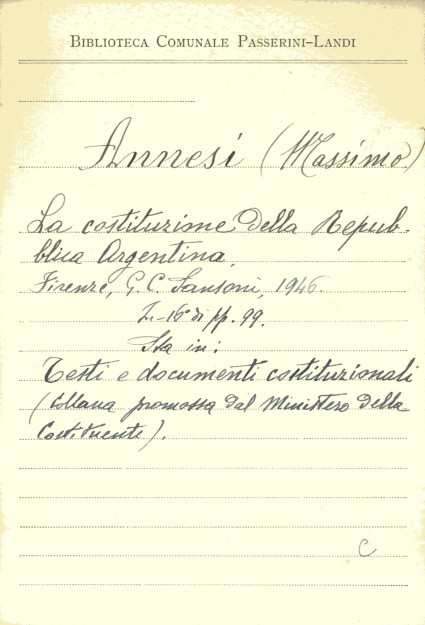 BIBLIOTECA COMUNALE PASSERINI-LANDI
Annesi (Massimo)
La costituzione della Repub-
blica Argentina.
Firenze, G. C. Sansoni, 1946.
In-16° di pp. 99.
Sta in:
Testi e documenti costituzionali
(Collana promossa dal Ministero della
Costituente).
C